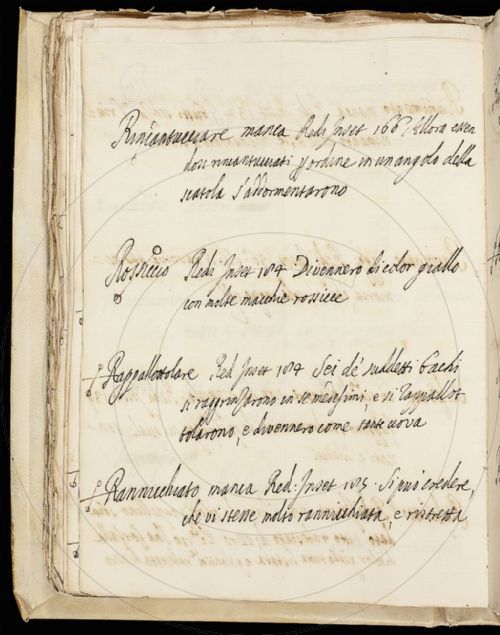 Rincantucciare manca Redi Inset 166 Allora essen
dosi rincantucciati p ordine in un angolo della
scatola s'addormentarono
Rossiccio Redi Inset 184 Divennero di color giallo
con molte macchie rossicce
Rappallottolare Red Inset 184 Sei de' suddetti bachi
si raggrinzarono in se medesimi, e si rappallot
tolarono, e divennero come tante uova
Rannicchiato manca Red: Inset 185 Si può credere,
che vi stesse molto rannicchiata, e ristretta